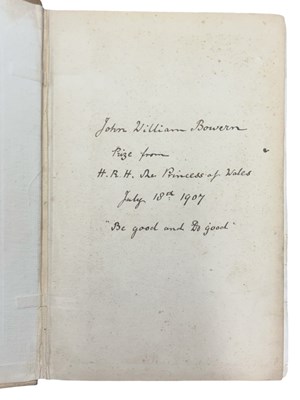 John William Bowern
Prize from
H.R.H. The Princess of Wales
July 18th 1907
"Be good and Do good"